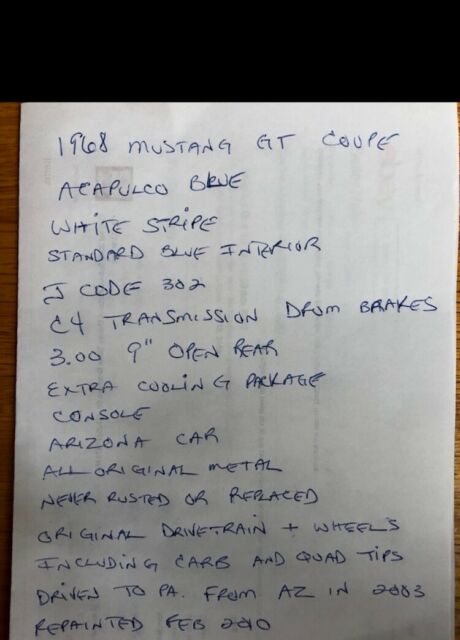 1968 MUSTANG GT COUPE
ACAPULCO BLUE
WHITE STRIPE
STANDARD BLUE INTERIOR
J CODE 302
C4 TRANSMISSION DRUM BRAKES
3.00 9" OPEN REAR
EXTRA COOLING PACKAGE
CONSOLE
ARIZONA CAR
ALL ORIGINAL METAL
NEVER RUSTED OR REPLACED
ORIGINAL DRIVETRAIN + WHEELS
INCLUDING CARB AND QUAD TIPS
DRIVEN TO PA. FROM AZ IN 2003
REPAINTED FEB 2010